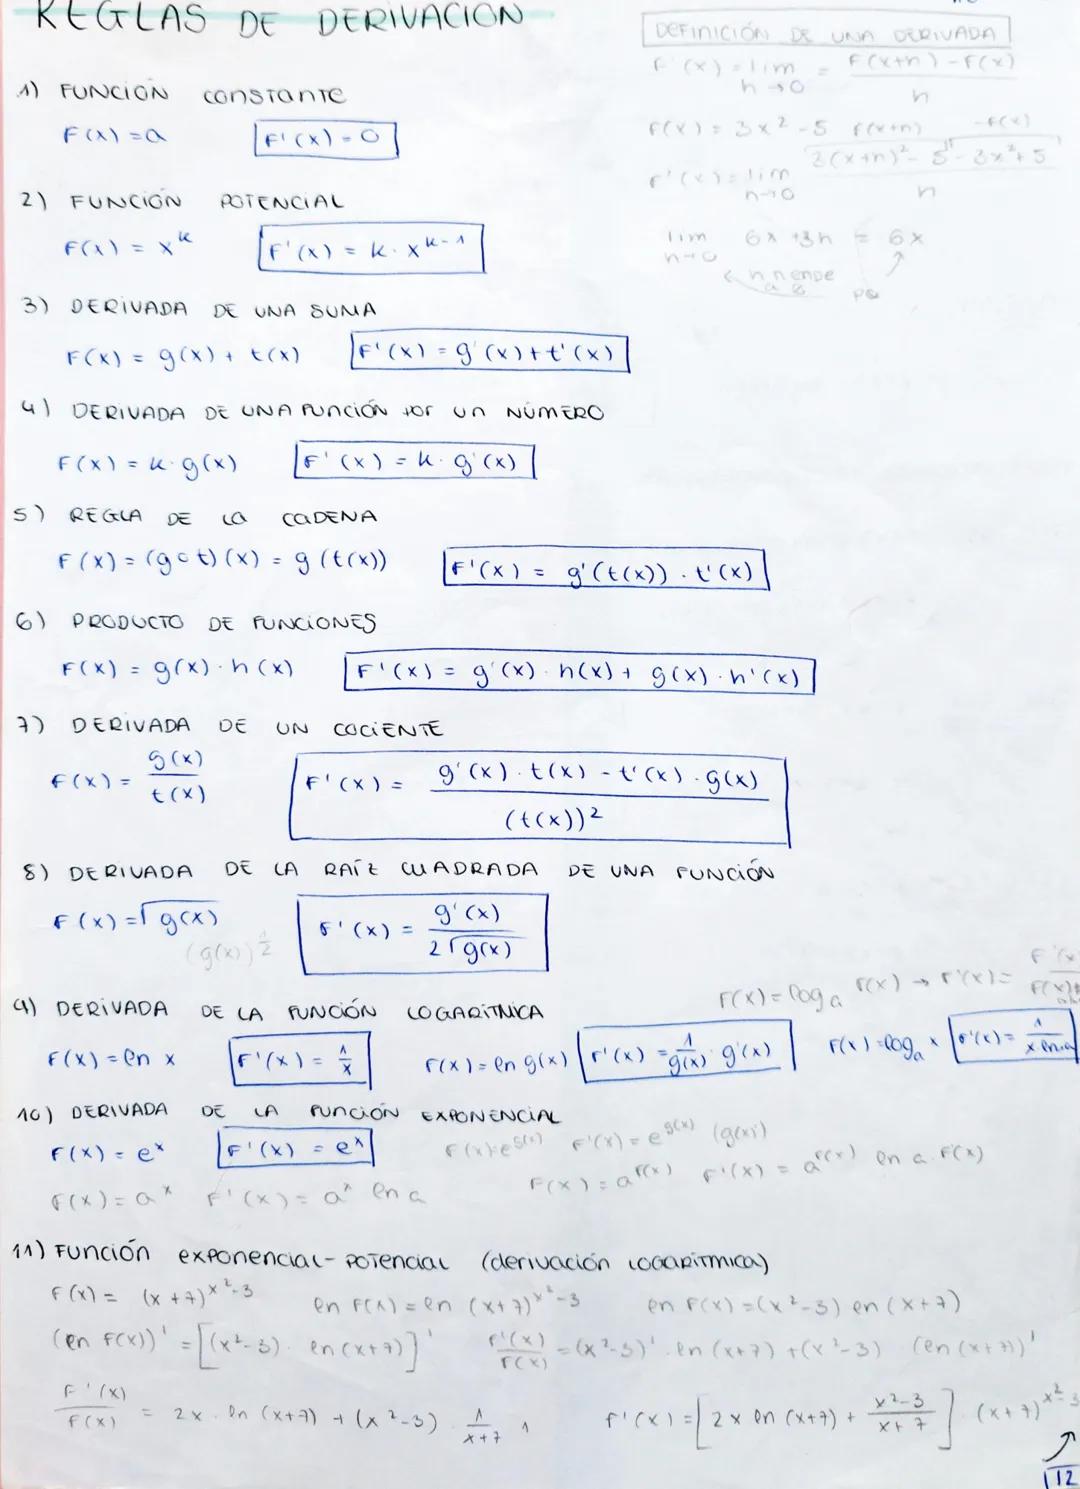 REGLAS DE DERIVACIÓN
DEFINICIÓN DE UNA DERIVADA
F'(x) = lim = F(x+h) - F(x)
h→0 h
F(x) = 3x² - 5 F(x+h) -F(x)
F'(x) = lim 3(x+h)² - 5 - 3x² + 5
h→0 h
lim 6x + 3h = 6x
h→0
1) FUNCIÓN CONSTANTE
F(x) = a F'(x) = 0
2) FUNCIÓN POTENCIAL
F(x) = x^k F'(x) = k · x^(k-1)
3) DERIVADA DE UNA SUMA
F(x) = g(x) + t(x) F'(x) = g'(x) + t'(x)
4) DERIVADA DE UNA FUNCIÓN POR UN NÚMERO
F(x) = k · g(x) F'(x) = k · g'(x)
5) REGLA DE LA CADENA
F(x) = (g∘t)(x) = g(t(x)) F'(x) = g'(t(x)) · t'(x)
6) PRODUCTO DE FUNCIONES
F(x) = g(x) · h(x) F'(x) = g'(x) · h(x) + g(x) · h'(x)
7) DERIVADA DE UN COCIENTE
F(x) = g(x) / t(x) F'(x) = g'(x) · t(x) - t'(x) · g(x) / (t(x))²
8) DERIVADA DE LA RAÍZ CUADRADA DE UNA FUNCIÓN
F(x) = √g(x) F'(x) = g'(x) / 2√g(x)
(g(x))^½
F(x) = log a F(x) → F'(x) =
9) DERIVADA DE LA FUNCIÓN LOGARÍTMICA
F(x) = ln x F'(x) = 1/x F(x) = ln g(x) F'(x) = 1/g(x) · g'(x) F(x) = log a x F'(x) = 1/x ln a
10) DERIVADA DE LA FUNCIÓN EXPONENCIAL
F(x) = e^x F'(x) = e^x F(x) = e^g(x) F'(x) = e^g(x) (g(x)')
F(x) = a^x F'(x) = a^x ln a F(x) = a^F(x) F'(x) = a^F(x) ln a · F(x)
11) FUNCIÓN exponencial-POTENCIAL (derivación LOGARÍTMICA)
F(x) = (x+7)^(x²-3) ln F(x) = ln (x+7)^(x²-3) ln F(x) = (x²-3) ln (x+7)
(ln F(x))' = [(x²-3) · ln (x+7)]' F'(x)/F(x) = (x²-3)' · ln (x+7) + (x²-3) · (ln (x+7))'
F'(x)/F(x) = 2x · ln (x+7) + (x²-3) · 1/(x+7) · 1 F'(x) = [2x ln (x+7) + (x²-3)/(x+7)] · (x+7)^(x²-3)
12